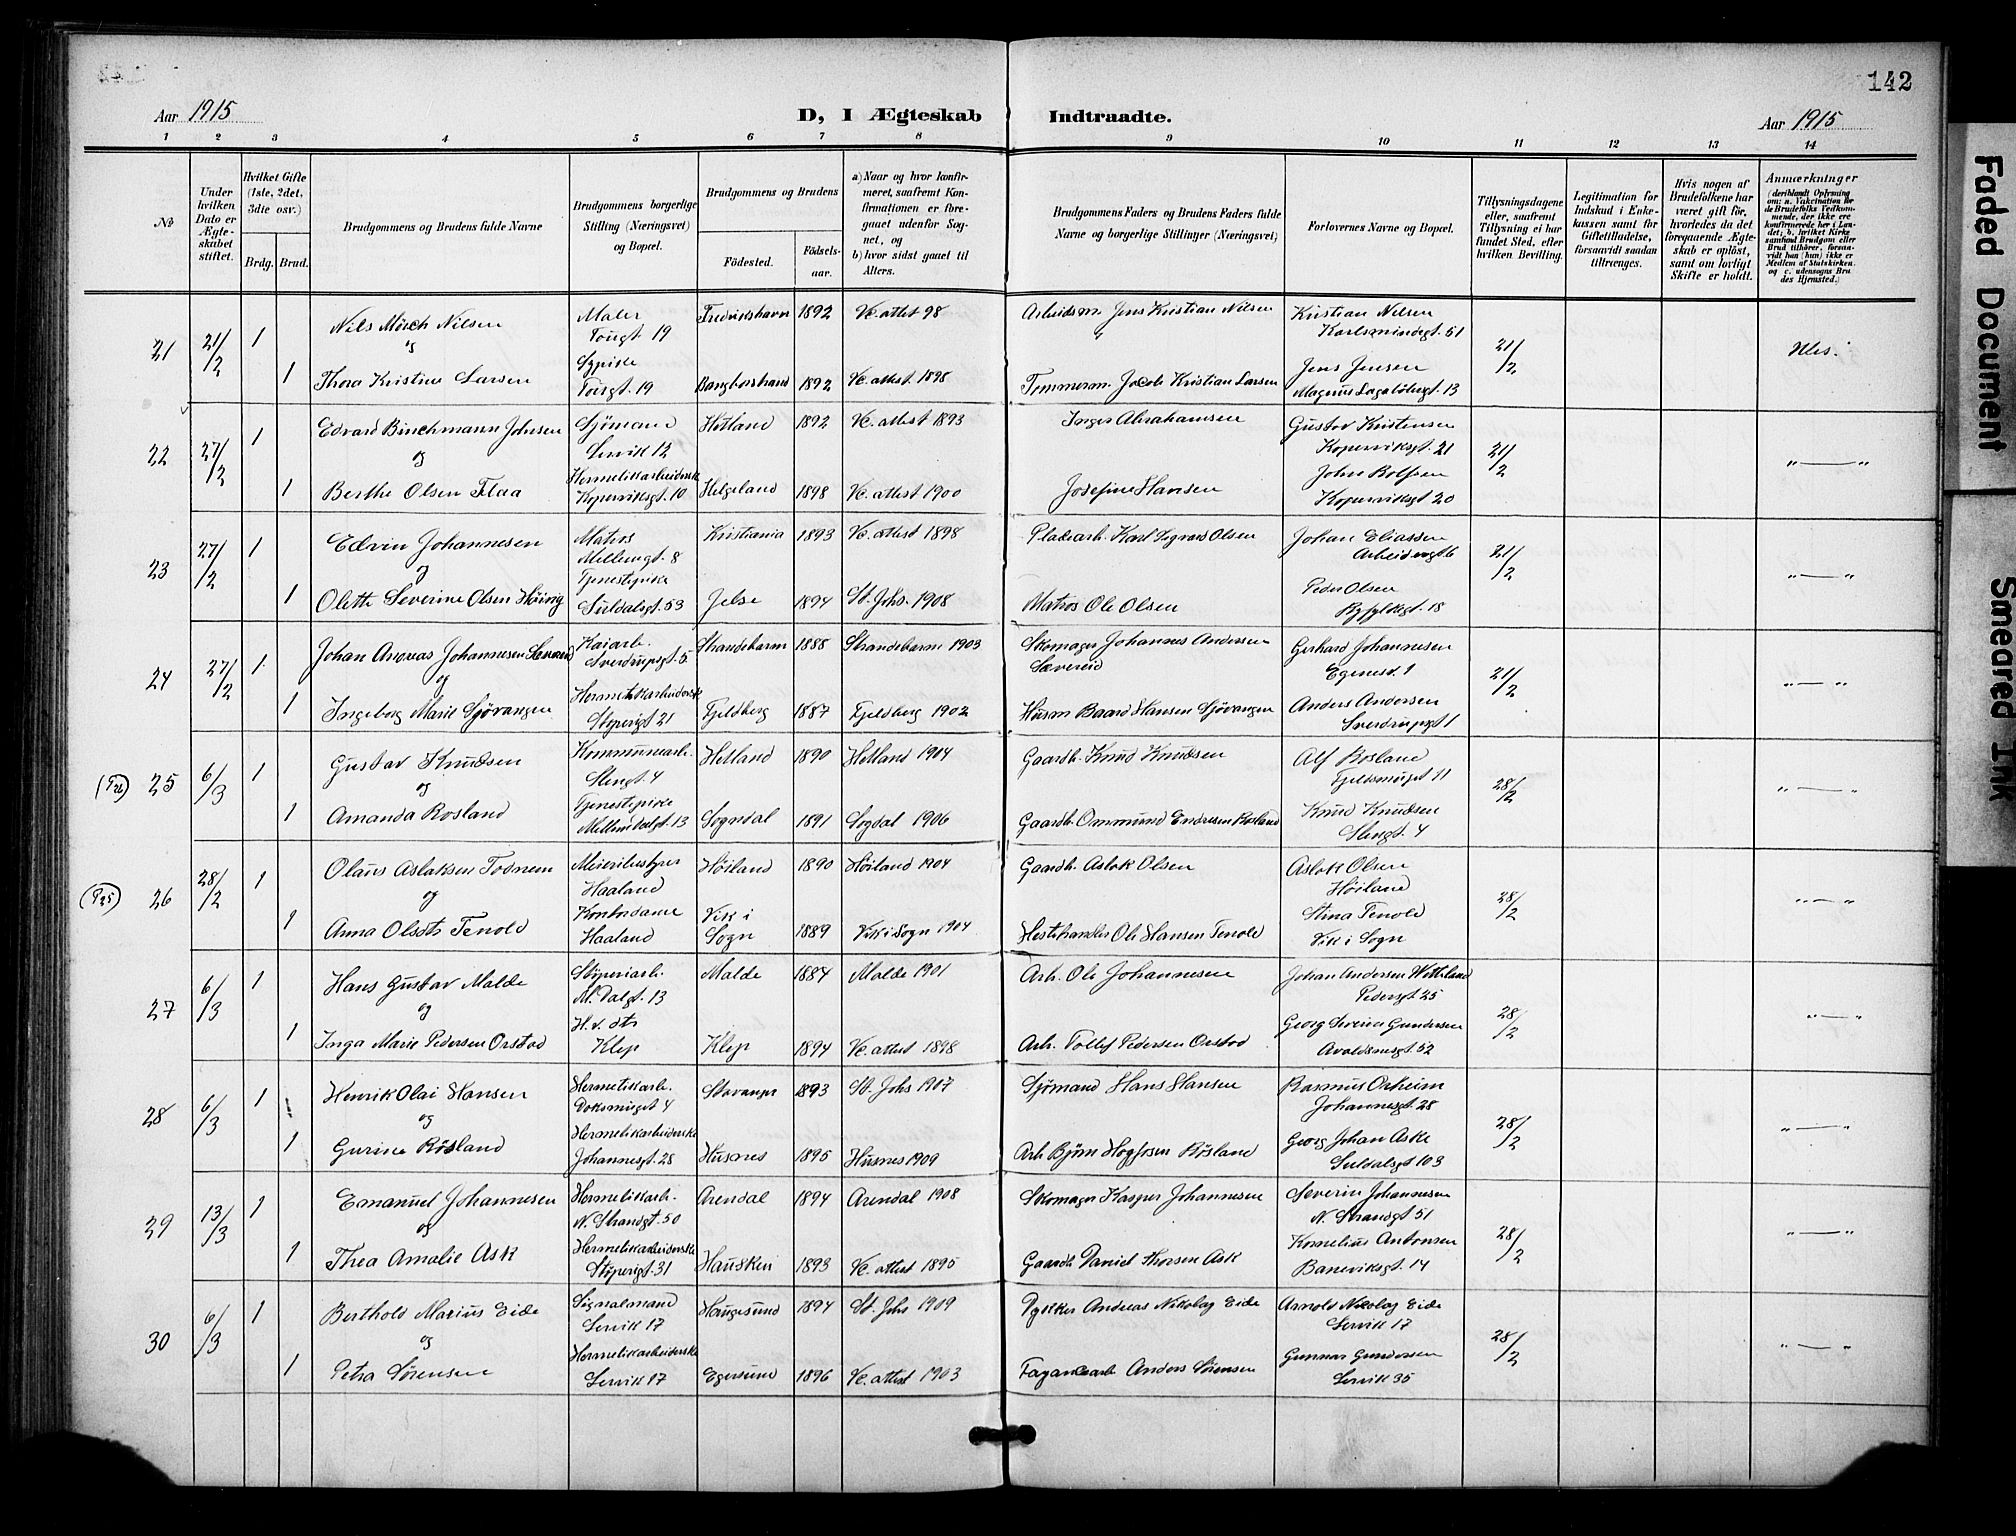 142
Aar 1915
D, I Ægteskab Indtraadte.
Aar 1915
1 2 3 4 5 6 7 8 9 10 11 12 13 14
№
Under hvilken Dato er Ægteskabet stiftet.
Hvilket Gifte (1ste, 2det, 3die osv.)
Brdg. Brud.
Brudgommens og Brudens fulde Navne
Brudgommens borgerlige Stilling (Næringsvei) og Bopæl.
Brudgommens og Brudens
Fødested. Fødsels-aar.
a) Naar og hvor konfirmeret, saafremt Konfirmationen er foregaaet udenfor Sognet, og
b) hvor sidst gaaet til Alters.
Brudgommens Faders og Brudens Faders fulde Navne og borgerlige Stillinger (Næringsvei)
Forlovernes Navne og Bopæl.
Tillysningsdagene eller, saafremt Tillysning ei har fundet Sted, efter hvilken Bevilling.
Legitimation for Indskud i Enkekassen samt for Giftetilladelse, forsaavidt saadan tiltrænges.
Hvis nogen af Brudefolkene har været gift før, hvorledes da det foregaaende Ægteskab er opløst, samt om lovligt Skifte er holdt.
Anmærkninger
(deriblandt Oplysning om: a. Vaccination for de Brudefolks Vedkommende, der ikke ere konfirmerede her i Landet; b. hvilket Kirkesamfund Brudgom eller Brud tilhører, forsaavidt han (hun) ikke er Medlem af Statskirken. og c. udensogns Brudes Hjemsted.)
21 21/2 1 Nils Mörch Nilsen Maler Fredrikshavn 1892 Vc. attest 98 Arbeidsm. Jens Kristian Nilsen Kristian Nilsen 21/2
og Tougt 19 Karlsmindegt. 51
1 Thora Kristine Larsen Sypike Torgt. 19 1892 Vc. attest. 1898 Tømmerm. Jacob Kristian Larsen Jens Jensen
22 27/2 1 Edvard Johnsen Sjömand Hetland 1892 Vc. attest 1893 Inger Abrahamsen Gustav Kristensen 21/2 " — "
og Lervik 12 Koperviksgt. 21
1 Berthe Olsen Flaa Hermetikarbeiderske Koperviksgt. 10 Helgeland 1898 Vc. attest 1900 Josefine Hansen John Rolfsen Koperviksgt 20
23 27/2 1 Edvin Johannesen Matros Kristiania 1893 Vc. attest 1898 Pladearb. Karl Sigvard Olsen Johan Eliassen 21/2 " — "
og
1 Olette Severine Olsen Tjenestepike Suldalsgt. 53 Jelse 1894 St. Johs. 1908 Matros Ole Olsen Peder Olsen Ryfylkegt. 18
24 27/2 1 Johan Andreas Johannesen Kaiarb. Sverdrupsgt. 5 Strandebarm 1888 Strandebarm 1903 Skomager Johannes Andersen Sævereid Gerhard Johannesen 21/2 " — "
og
1 Ingeborg Marie Sjövangen Hermetikarbeidersk Støperigt 21 Fjeldberg 1887 Fjeldberg 1902 Husm Baard Hansen Sjövangen Anders Andersen Sverdrupsgt 1
25 6/3 1 Gustav Knudsen Kommunearb. Stengt. 4 Hetland 1890 Hetland 1904 Gaardb. Knud Knudsen Alf Rosland 28/2 " — "
og
1 Amanda Rosland Tjenestepike Sogndal 1891 Sogdal 1906 Gaardb. Ommund Endresen Rosland Knud Knudsen Stengt. 4
26 28/2 1 Olaus Aslaksen Todnem Meieribestyrer Haaland Höiland 1890 Höiland 1904 Gaardb. Aslak Olsen Aslak Olsen Höiland 28/2 " — "
og
1 Anna Olsdtr Tenold Kontordame Haaland Vik i Sogn 1889 Vik i Sogn 1904 Hestehandler Ole Hansen Tenold Stina Tenold Vik i Sogn
27 6/3 1 Hans Gustav Malde Støperiarb. M. Dalgt. 13 Malde 1884 Malde 1901 Arb. Ole Johannesen Johan Andersen Pedersgt 25 28/2 " — "
og
1 Inga Marie Pedersen Orstad Klep Klep 1894 Vc. attest 1898 Arb. Tollef Pedersen Orstad Georg Gundersen Avaldsnesgt. 52
28 6/3 1 Henrik Olai Hansen Hermetikarb. Stavanger 1893 St. Johs 1907 Sjömand Hans Hansen Rasmus Orheim Johannesgt. 28 28/2 " — "
og
1 Gurine Røsland Hermetikarbeiderske Johannesgt. 28 Husnes 1895 Husnes 1909 Arb Bjørn Røsland Georg Johan Aske Suldalsgt 103
29 13/3 1 Emanuel Johannesen Hermetikarb. N. Strandgt. 50 Arendal 1894 Arendal 1908 Skomager Kasper Johannesen Severin Johannesen N. Strandgt 51 28/2 " — "
og
1 Thea Amalie Ask Hermetikarbeiderske Støperigt 31 Hausken 1893 Vc. attest 1895 Gaardb. Daniel Thorsen Ask Kornelius Antonsen Baneviksgt. 14
30 6/3 1 Berthold Marius Eide Signalmand Lervik 17 Haugesund 1894 St. Johs 1909 Andreas Nikolay Eide Arnold Nikolay Eide Lervik 17 28/2 " — "
og
1 Petra Sørensen Hermetikarbeiderske Lervik 17 Egersund 1896 Vc. attest 1903 Anders Sørensen Gunnar Gundersen Lervik 35
Faded Document
Smeared Ink